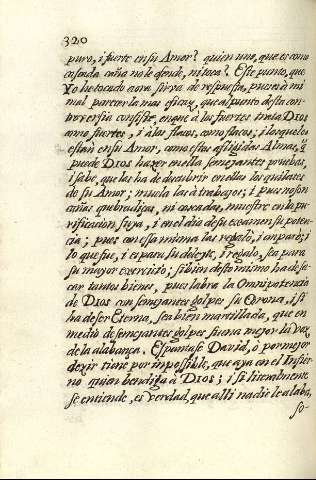 320
puro, i fuerte en su Amor? quien uno, que es como
cascada caña no le ofende, ni toca? Este punto, que
Yo he tocado aora sirva de respuesta, pues à mi
mal parecer la mas eficaz, que al punto desta con-
troversia consiste, en que à los fuertes trata DIOS
como fuertes, i à los flacos, como flacos; i los que lo
estan en su Amor, como estas afligidas Almas, q
puede DIOS hazer en ella semejantes pruebas,
i sabe, que las ha de descubrir en ellas los quilates
de su Amor; muela las à trabajos; i pues no son
cañas quebradizas, ni cascadas, muestre en la pu-
rificacion suya, i en el dia de su examen su poten-
cia; pues con essa mima las regalò, i amparò; i
lo que fue, i es para su deleyte, i regalo, sea para
su mayor exercicio; si bien desto mismo ha de sa-
car tantos bienes, pues labra la Omnipotencia
de DIOS con semejantes golpes su Corona, i si
ha de ser Eterna, sea bien martillada, que en
medio de semejantes golpes suena mejor la voz
de la alabança. Espantase David, ò por mejor
dezir tiene por impossible, que aya en el Infier-
no quien bendiga à DIOS; i si literalmente
se entiende, es verdad, que alli nadie le alaba,
so-